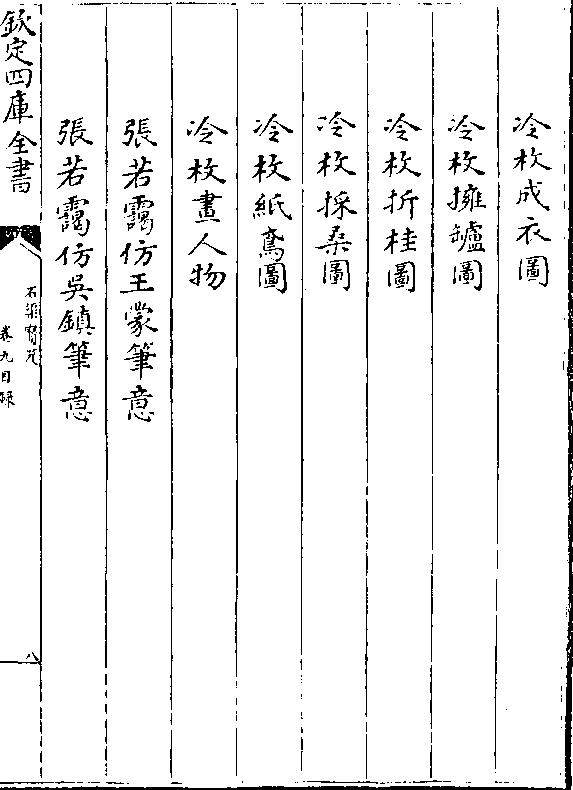 冷枚成衣圖
冷枚擁罏圖
冷枚折桂圖
冷枚採桑圖
冷枚紙鳶圖
冷枚畫人物
張若靄仿王蒙筆意
張若靄仿吳鎮筆意
欽定四庫全書
石渠寶笈
卷九目錄
八